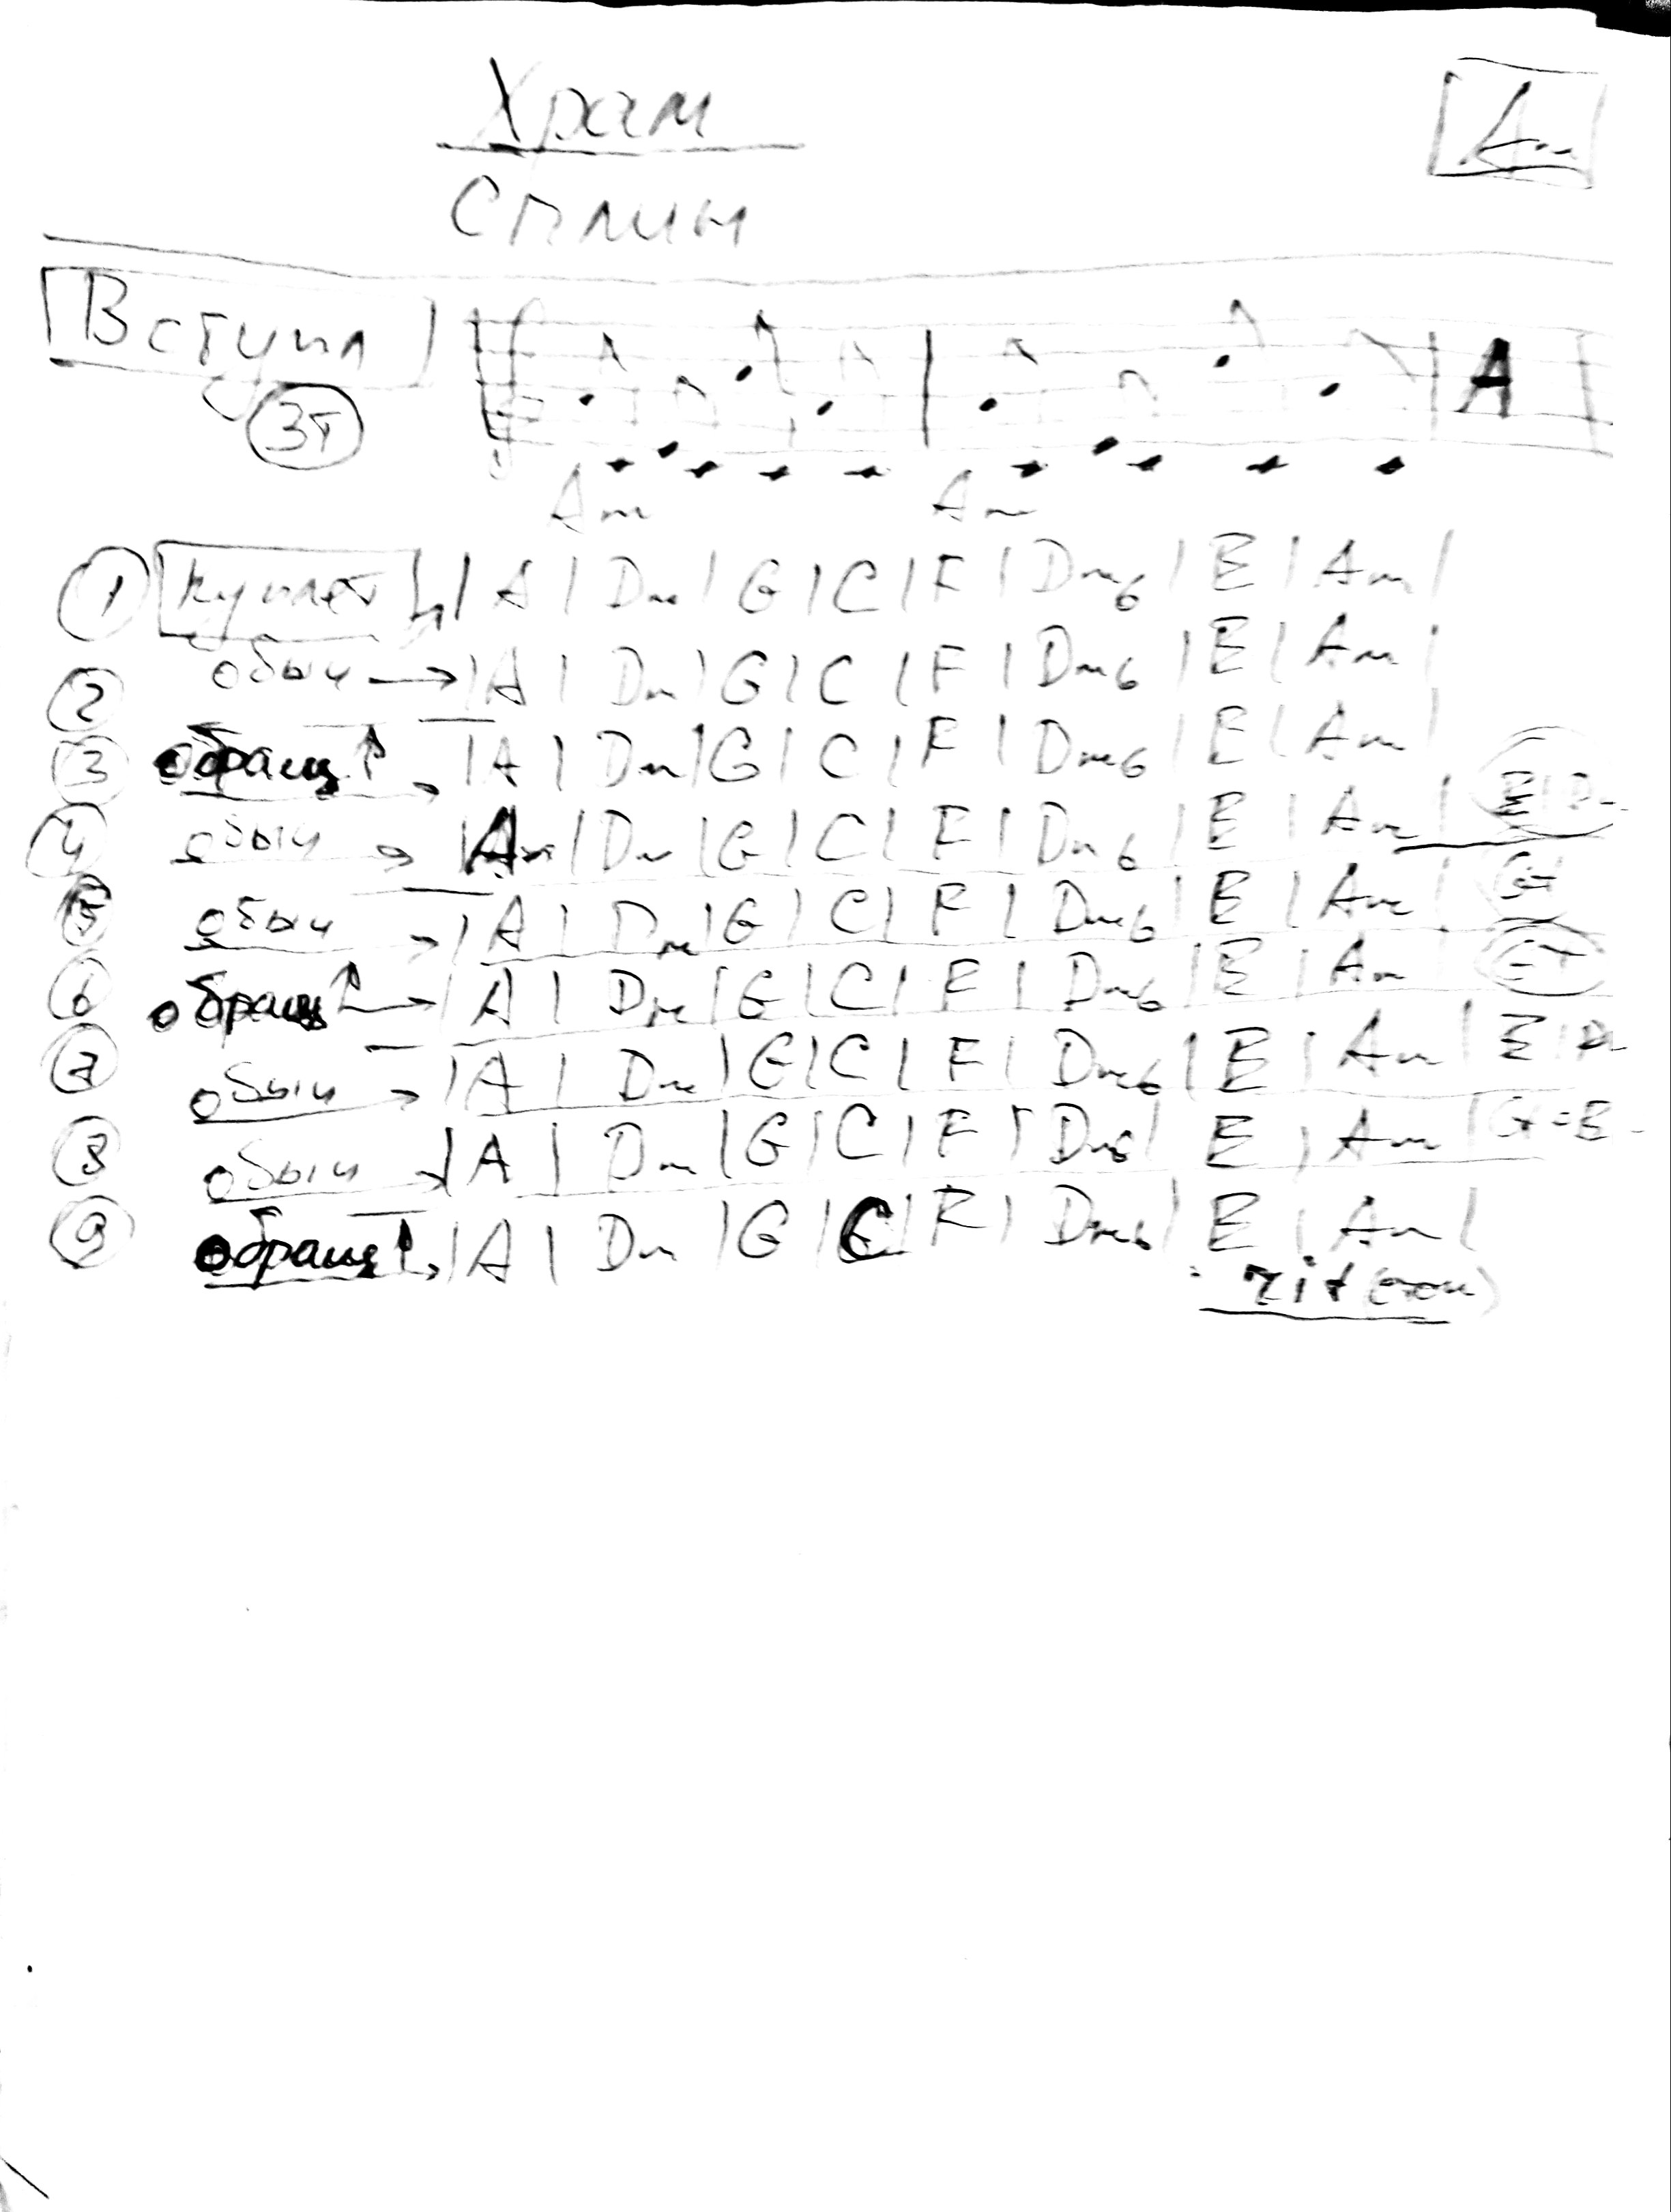 Храм
Am
Сплин
Вступл
A
3т
Am Am
1 Куплет | A | Dm | G | C | F | Dm6 | E | Am |
2 обыч → | A | Dm | G | C | F | Dm6 | E | Am |
3 обращ ↑ → | A | Dm | G | C | F | Dm6 | E | Am |
4 обыч → | Am | Dm | G | C | F | Dm6 | E | Am |
5 обыч → | A | Dm | G | C | F | Dm6 | E | Am |
6 обращ ↑ → | A | Dm | G | C | F | Dm6 | E | Am |
7 обыч → | A | Dm | G | C | F | Dm6 | E | Am |
8 обыч → | A | Dm | G | C | F | Dm6 | E | Am |
9 обращ ↑ → | A | Dm | G | C | F | Dm6 | E | Am |
rit